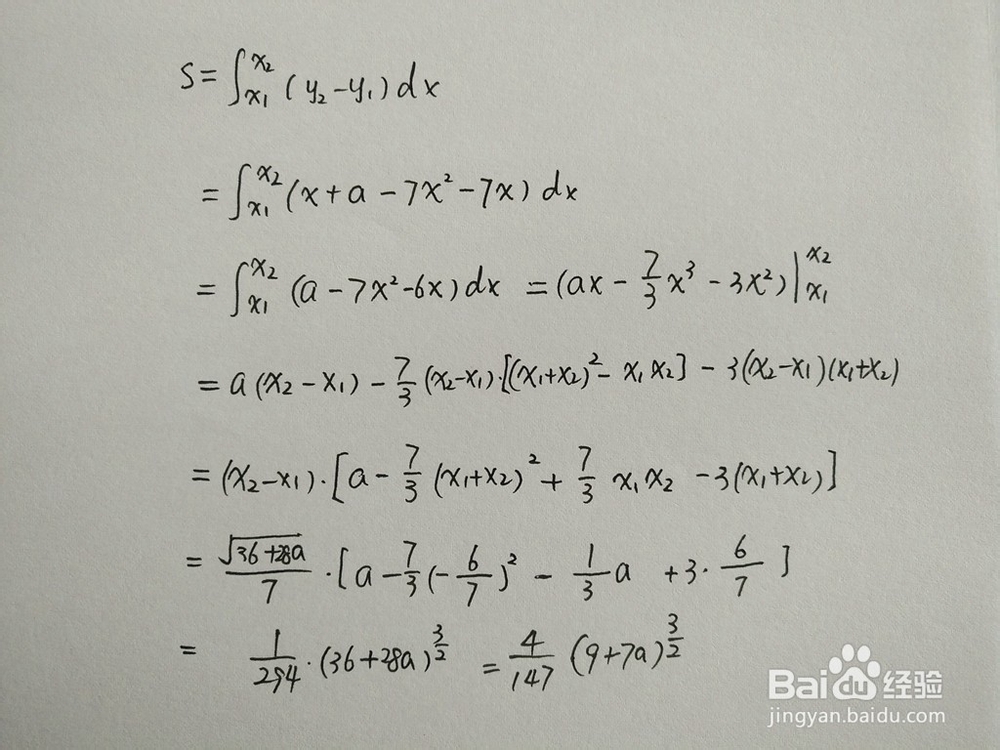 S=∫_{x₁}^{x₂}(y₂-y₁)dx
=∫_{x₁}^{x₂}(x+a-7x²-7x)dx
=∫_{x₁}^{x₂}(a-7x²-6x)dx =(ax-\frac{7}{3}x³-3x²)|_{x₁}^{x₂}
=a(x₂-x₁)-\frac{7}{3}(x₂-x₁)·[(x₁+x₂)²-x₁x₂]-3(x₂-x₁)(x₁+x₂)
=(x₂-x₁)·[a-\frac{7}{3}(x₁+x₂)²+\frac{7}{3}x₁x₂-3(x₁+x₂)]
=\frac{\sqrt{36+28a}}{7}·[a-\frac{7}{3}(-\frac{6}{7})²-\frac{1}{3}a+3·\frac{6}{7}]
=\frac{1}{294}·(36+28a)^{\frac{3}{2}} =\frac{4}{147}(9+7a)^{\frac{3}{2}}
Baidu经验
jingyan.baidu.com